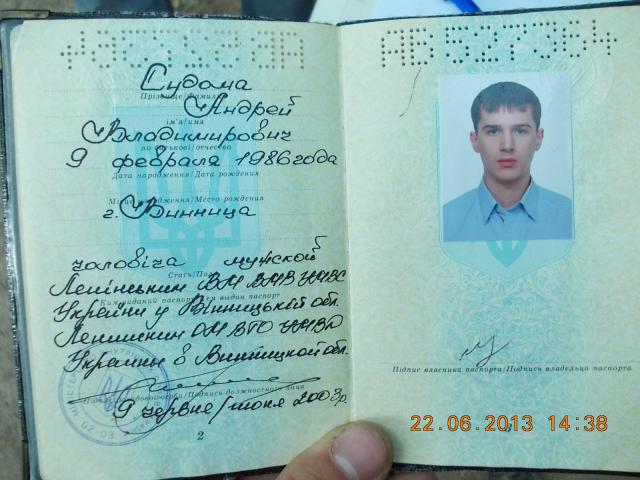 АВ 527364
Судома
Прізвище/Фамилия
Андрей
ім'я/имя
Владимирович
по батькові/отчество
9 февраля 1986 года
Дата народження/Дата рождения
Місце народження/Место рождения
г. Винница
чоловіча мужской
Стать/Пол
Ленінським ВМ УМВС
Ким виданий паспорт/Кем выдан паспорт
України у Вінницькій обл.
Ленинским УМВД
Украины в Винницкой обл.
Підпис посадової особи/Подпись должностного лица
9 червня/июня 2003 р.
2
Підпис власника паспорта/Подпись владельца паспорта
22.06.2013 14:38